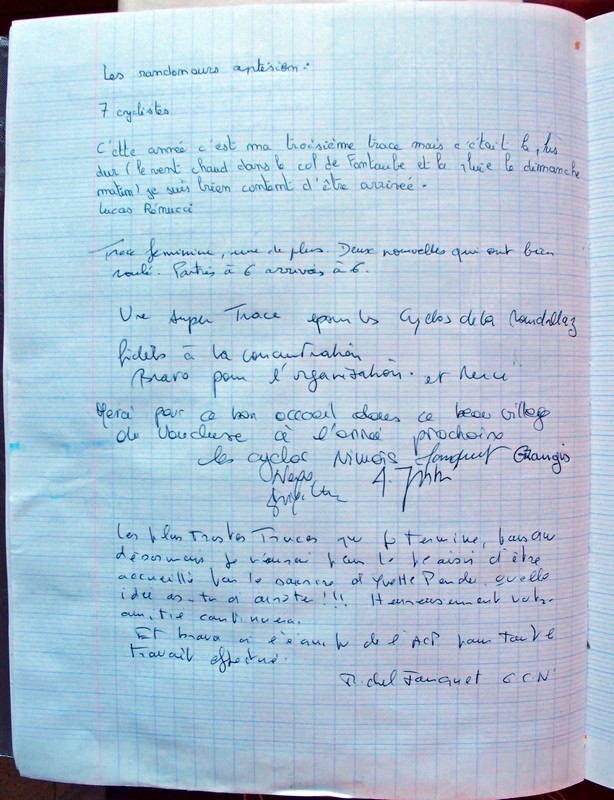 Les randonneurs aptésien :
7 cyclistes
C'ette année c'est ma troisième trace mais c'était la plus
dur (le vent chaud dans le col de Fontaube et la pluie le dimanche
matin) je suis bien content d'être arrivée.
Lucas Rénucci
Trace féminine, une de plus. Deux nouvelles qui ont bien
roulé. Parties à 6 arrivées à 6.
Une super Trace pour les Cyclos de la
fidèles à la concentration
Bravo pour l'organization. et Merci
Merci pour ce bon accueil dans ce beau village
de Vaucluse à l'année prochaine
les cyclos Nimois Fouquet
Les plus Tristes Traces que je termine,
désormais je n'aurai plus le plaisir d'être
accueilli par le sourire d'Yvette quelle
idée as-tu d'arrêter !!! Heureusement votre
amitié continuera.
Et bravo à l'équipe de l'ACP pour tout le
travail effectué.
Michel Fouquet C.C.N